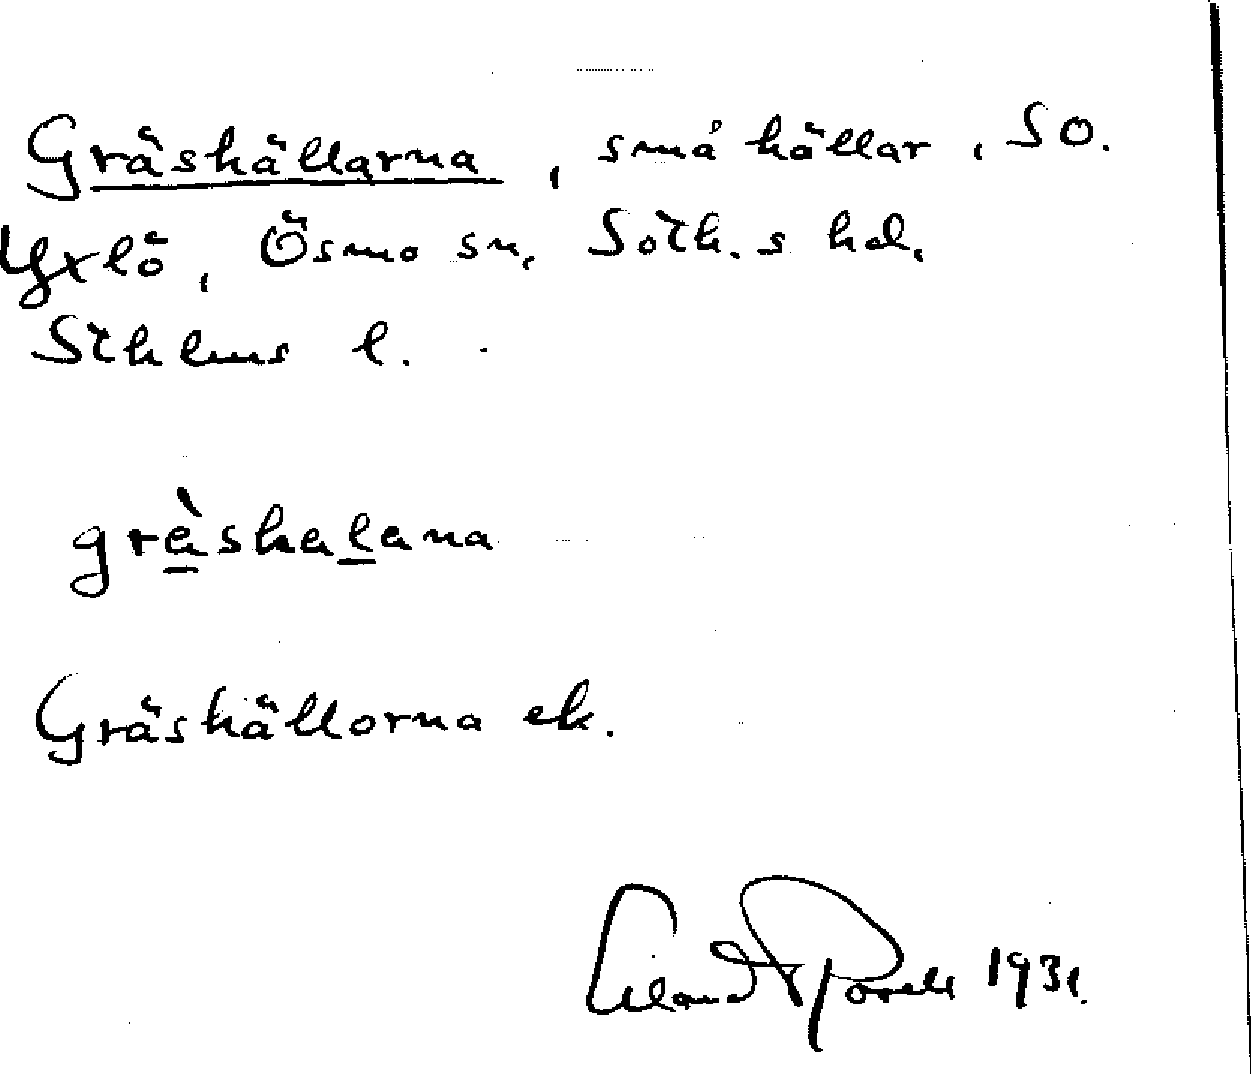 Gräshällarna, små hällar, SO.
Yxlö, Ösmo sn, Soth. s hd.
Sthlms l.
grèshalana
Gräshällorna ek.
1931.